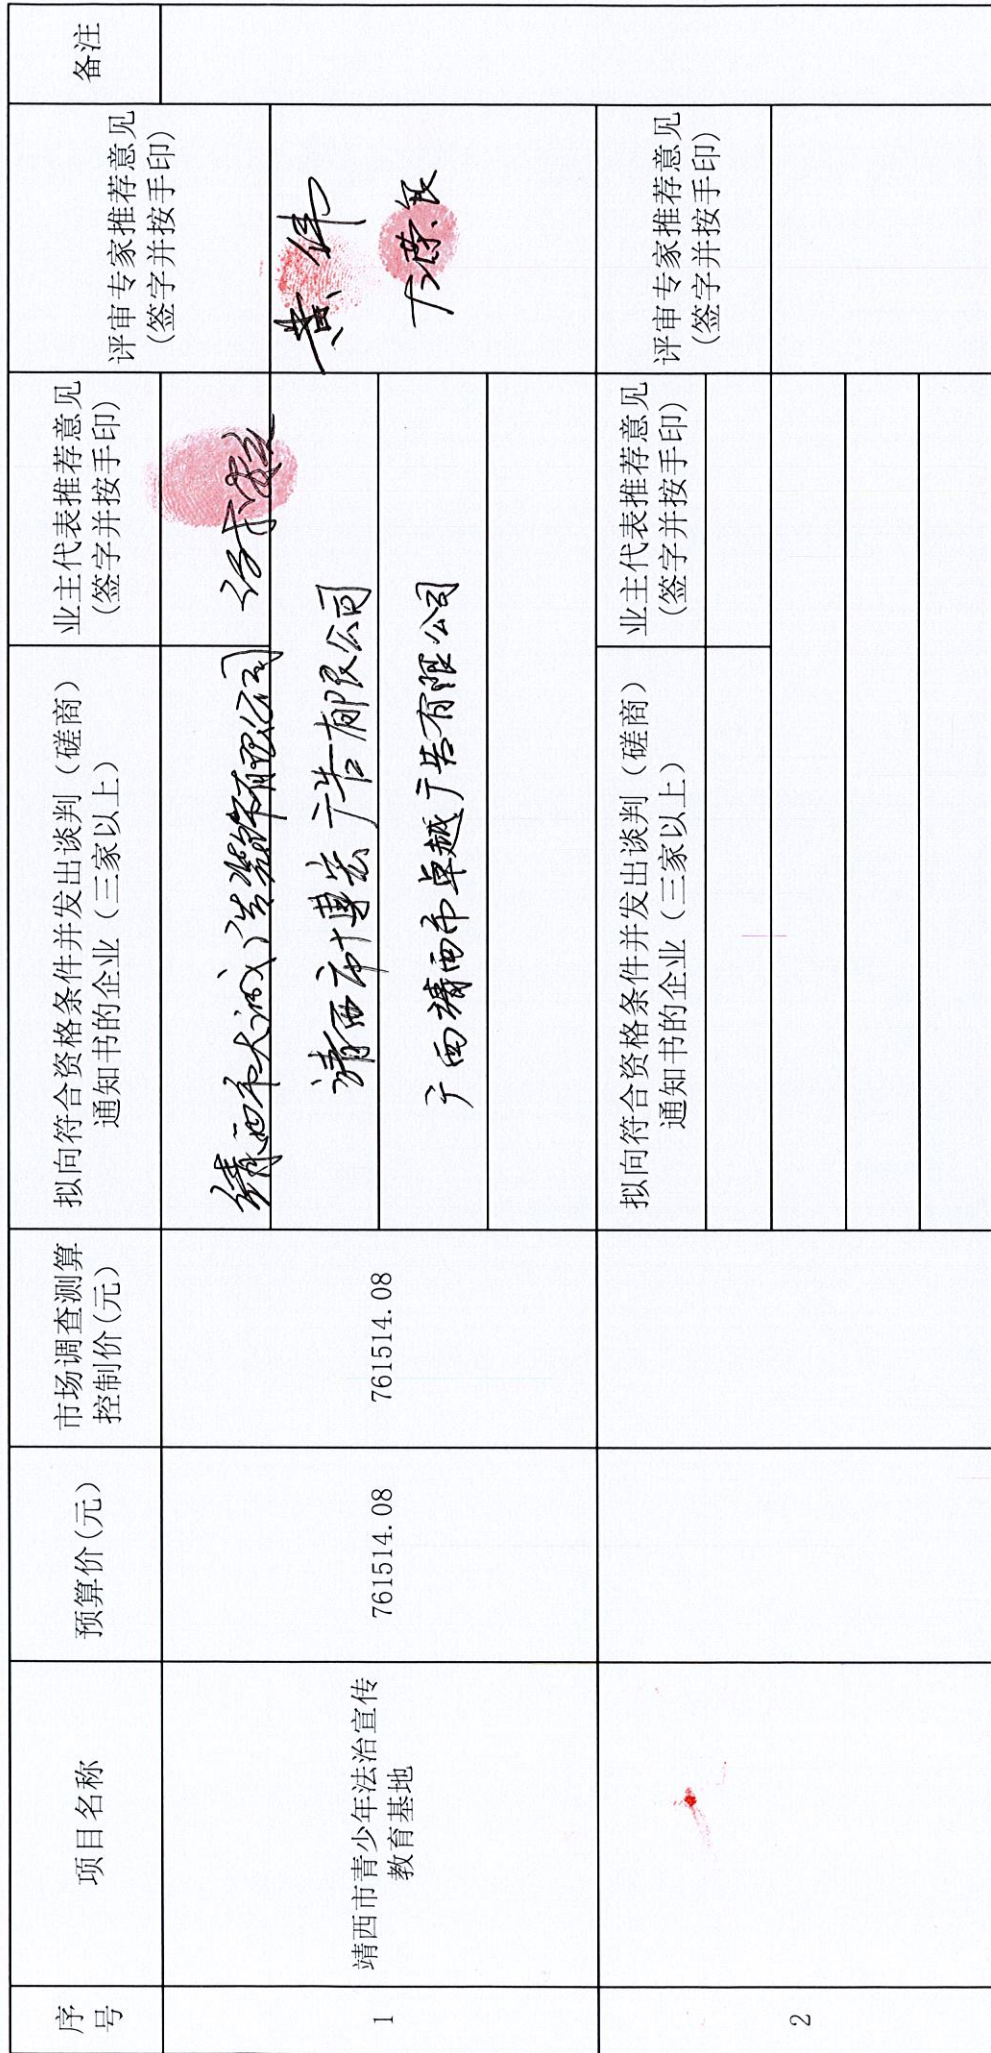 序号
项目名称
预算价(元)
市场调查测算
控制价(元)
拟向符合资格条件并发出谈判（磋商）
通知书的企业（三家以上）
业主代表推荐意见
(签字并按手印)
评审专家推荐意见
(签字并按手印)
备注
1
靖西市青少年法治宣传
教育基地
761514.08
761514.08
靖西市大诚广告装饰有限公司
靖西市博宏广告有限公司
广西靖西市卓越广告有限公司
黄伟
2
拟向符合资格条件并发出谈判（磋商）
通知书的企业（三家以上）
业主代表推荐意见
(签字并按手印)
评审专家推荐意见
(签字并按手印)